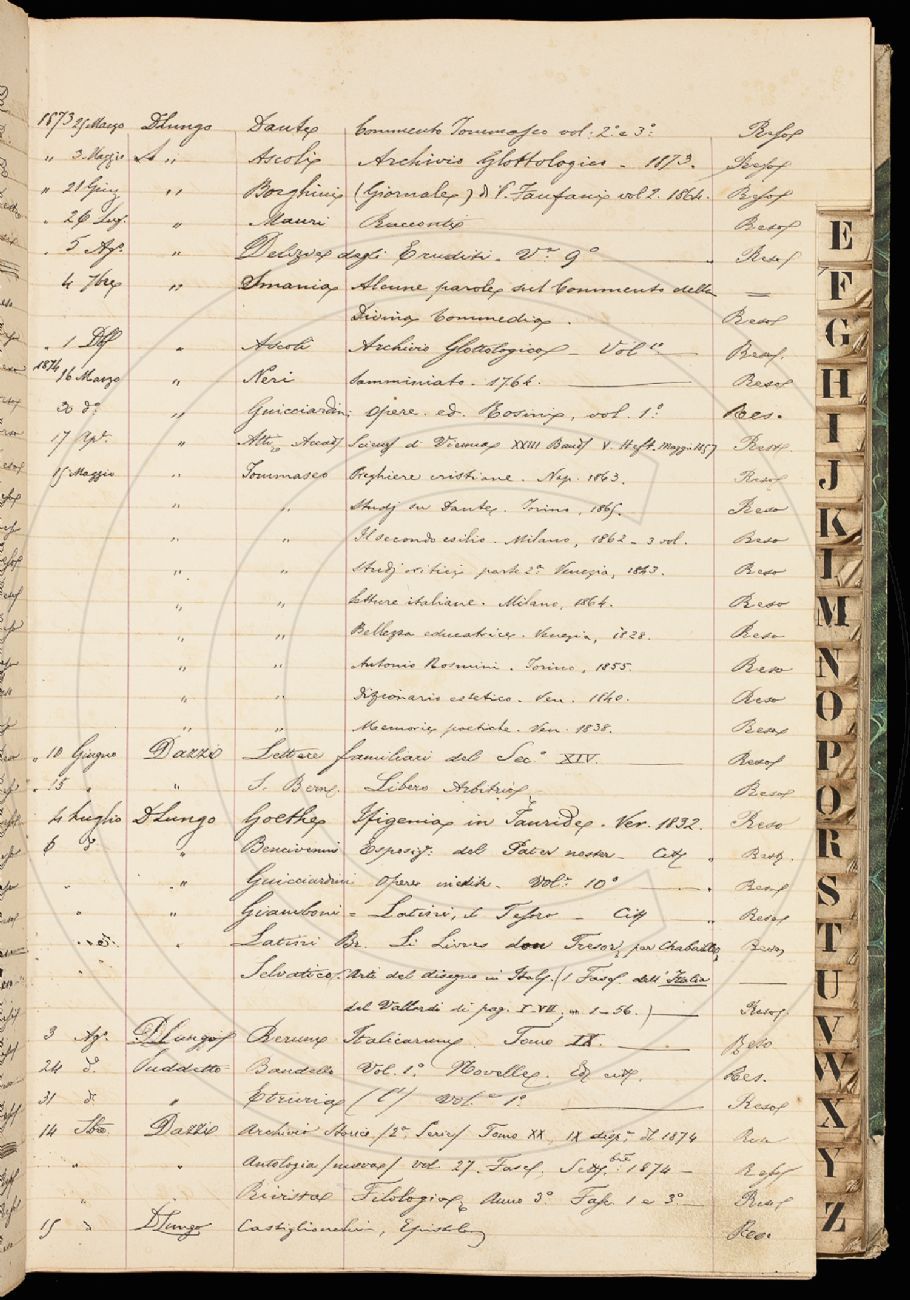 1873 25 Marzo DLungo Dante Commento Tommaseo vol: 2° e 3° Reso
" 3 Maggio " Ascoli Archivio Glottologico - 1873. Reso
" 21 Giug " Borghini (Giornale) di P. Fanfani vol 2. 1864. Reso
" 26 Lug. " Mauri Racconti Reso
" 5 Ag°. " Delizie degli Eruditi. V. 9° Reso
4 7bre " Smania Alcune parole sul Commento della
Divina Commedia. Reso
" 1 " Ascoli Archivio Glottologico - Vol Reso
1874
16 Marzo " Neri Samminiato. 1764. Reso
30 d°. " Guicciardini Opere. ed. Rosini, vol. 1° Res.
17 " Atti Accad di Vienna XXIII Band V. Heft. 1857 Reso
15 Maggio " Tommaseo Preghiere cristiane. Nap. 1863. Reso
" " Studj su Dante. Torino, 1865. Reso
" " Il secondo esilio. Milano, 1862 - 3 vol. Reso
" " Studj critici parte 2a Venezia, 1843. Reso
" " Letture italiane. Milano, 1864. Reso
" " Bellezza educatrice. Venezia, 1838. Reso
" " Antonio Rosmini. Torino, 1855. Reso
" " Dizionario estetico. Ven. 1840. Reso
" " Memorie poetiche. Ven. 1838. Reso
" 10 Giugno Dazzi Lettere familiari del Sec° XIV. Reso
" 15 " " S. Bern. Libero Arbitrio Reso
4 Luglio DLungo Goethe Ifigenia in Tauride. Ver. 1832. Reso
6 d° " Bencivenni Esposiz: del Pater noster - Citt " Reso
" " Guicciardini Opere inedite. Vol: 10° " Reso
" " Giamboni = Latini, il Tesoro - Citt " Reso
" d°. " Latini Br. Li Livres dou Tresor, par Chabaille, Reso
" Selvatico. Arti del disegno in Italy. (1 Fasc. dell'Italia
del Vallardi di pag. XVII, 1-56.) Reso
3 Ag°. DLungo Rerum Italicarum Tomo IX. Reso
24 d° Suddetto Bandello Vol. 1° Novelle. Ed Res.
31 d° " Etruria (L') Vol. 1° Reso
14 Dazzi Archivio Storico / 2a Serie / Tomo XX, IX disp. del 1874
" " Antologia / nuova / vol 27. Fasc. Settbre 1874 - Reso
" " Rivista Filologia, Anno 3° Fasc. 1 e 3° Reso
15 d° DLungo Castiglionchio, Epistola Res.
E
F
G
H
I
J
K
L
M
N
O
P
Q
R
S
T
U
V
W
X
Y
Z